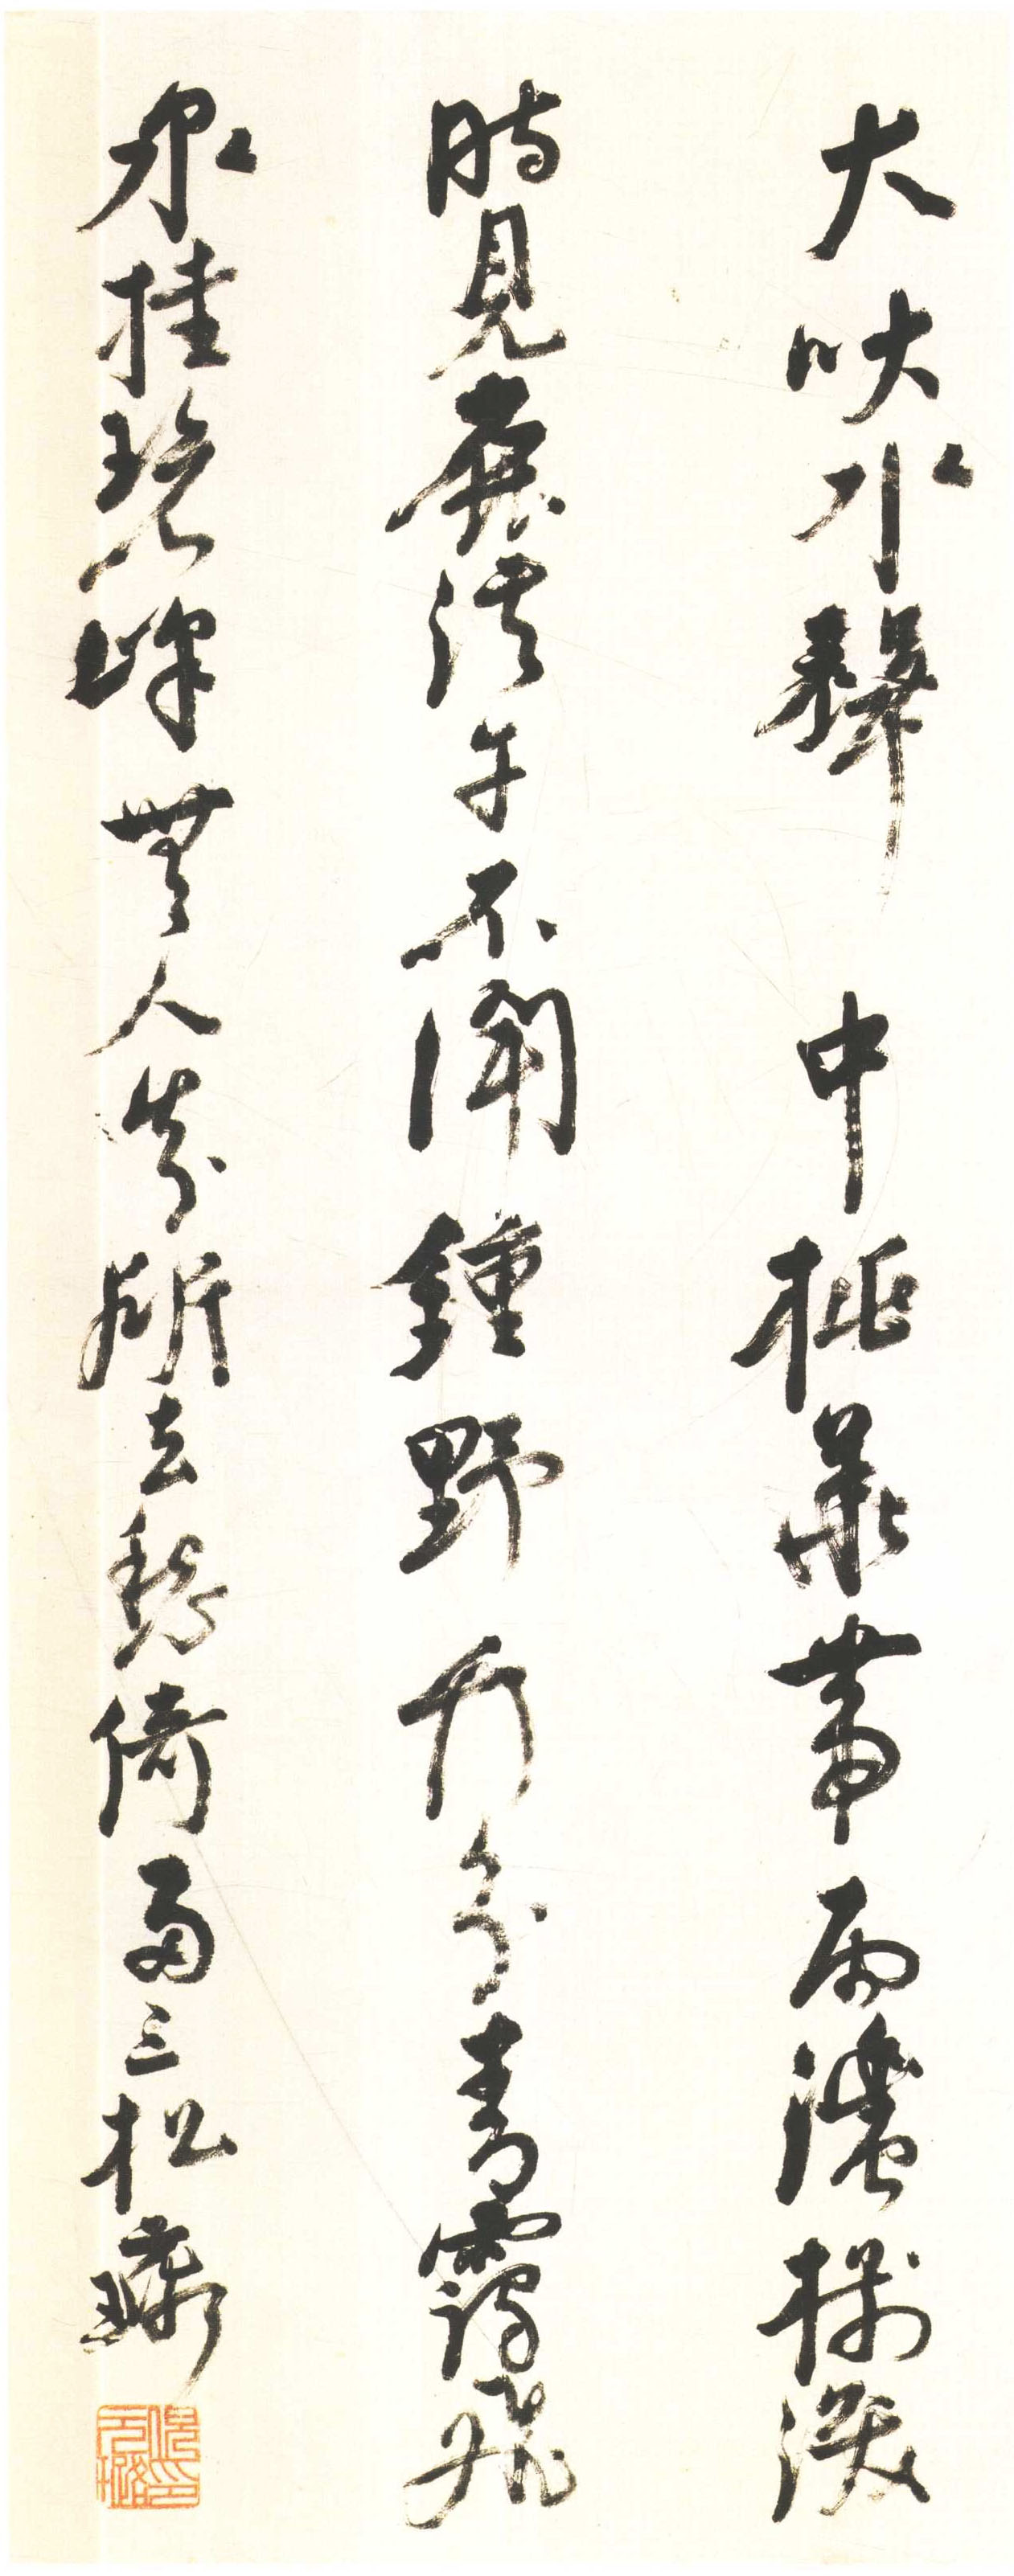 犬吠水聲中桃華帶雨濃樹深
時見鹿溪午不聞鍾野竹分青靄飛
泉挂碧峰無人知所去愁倚兩三松